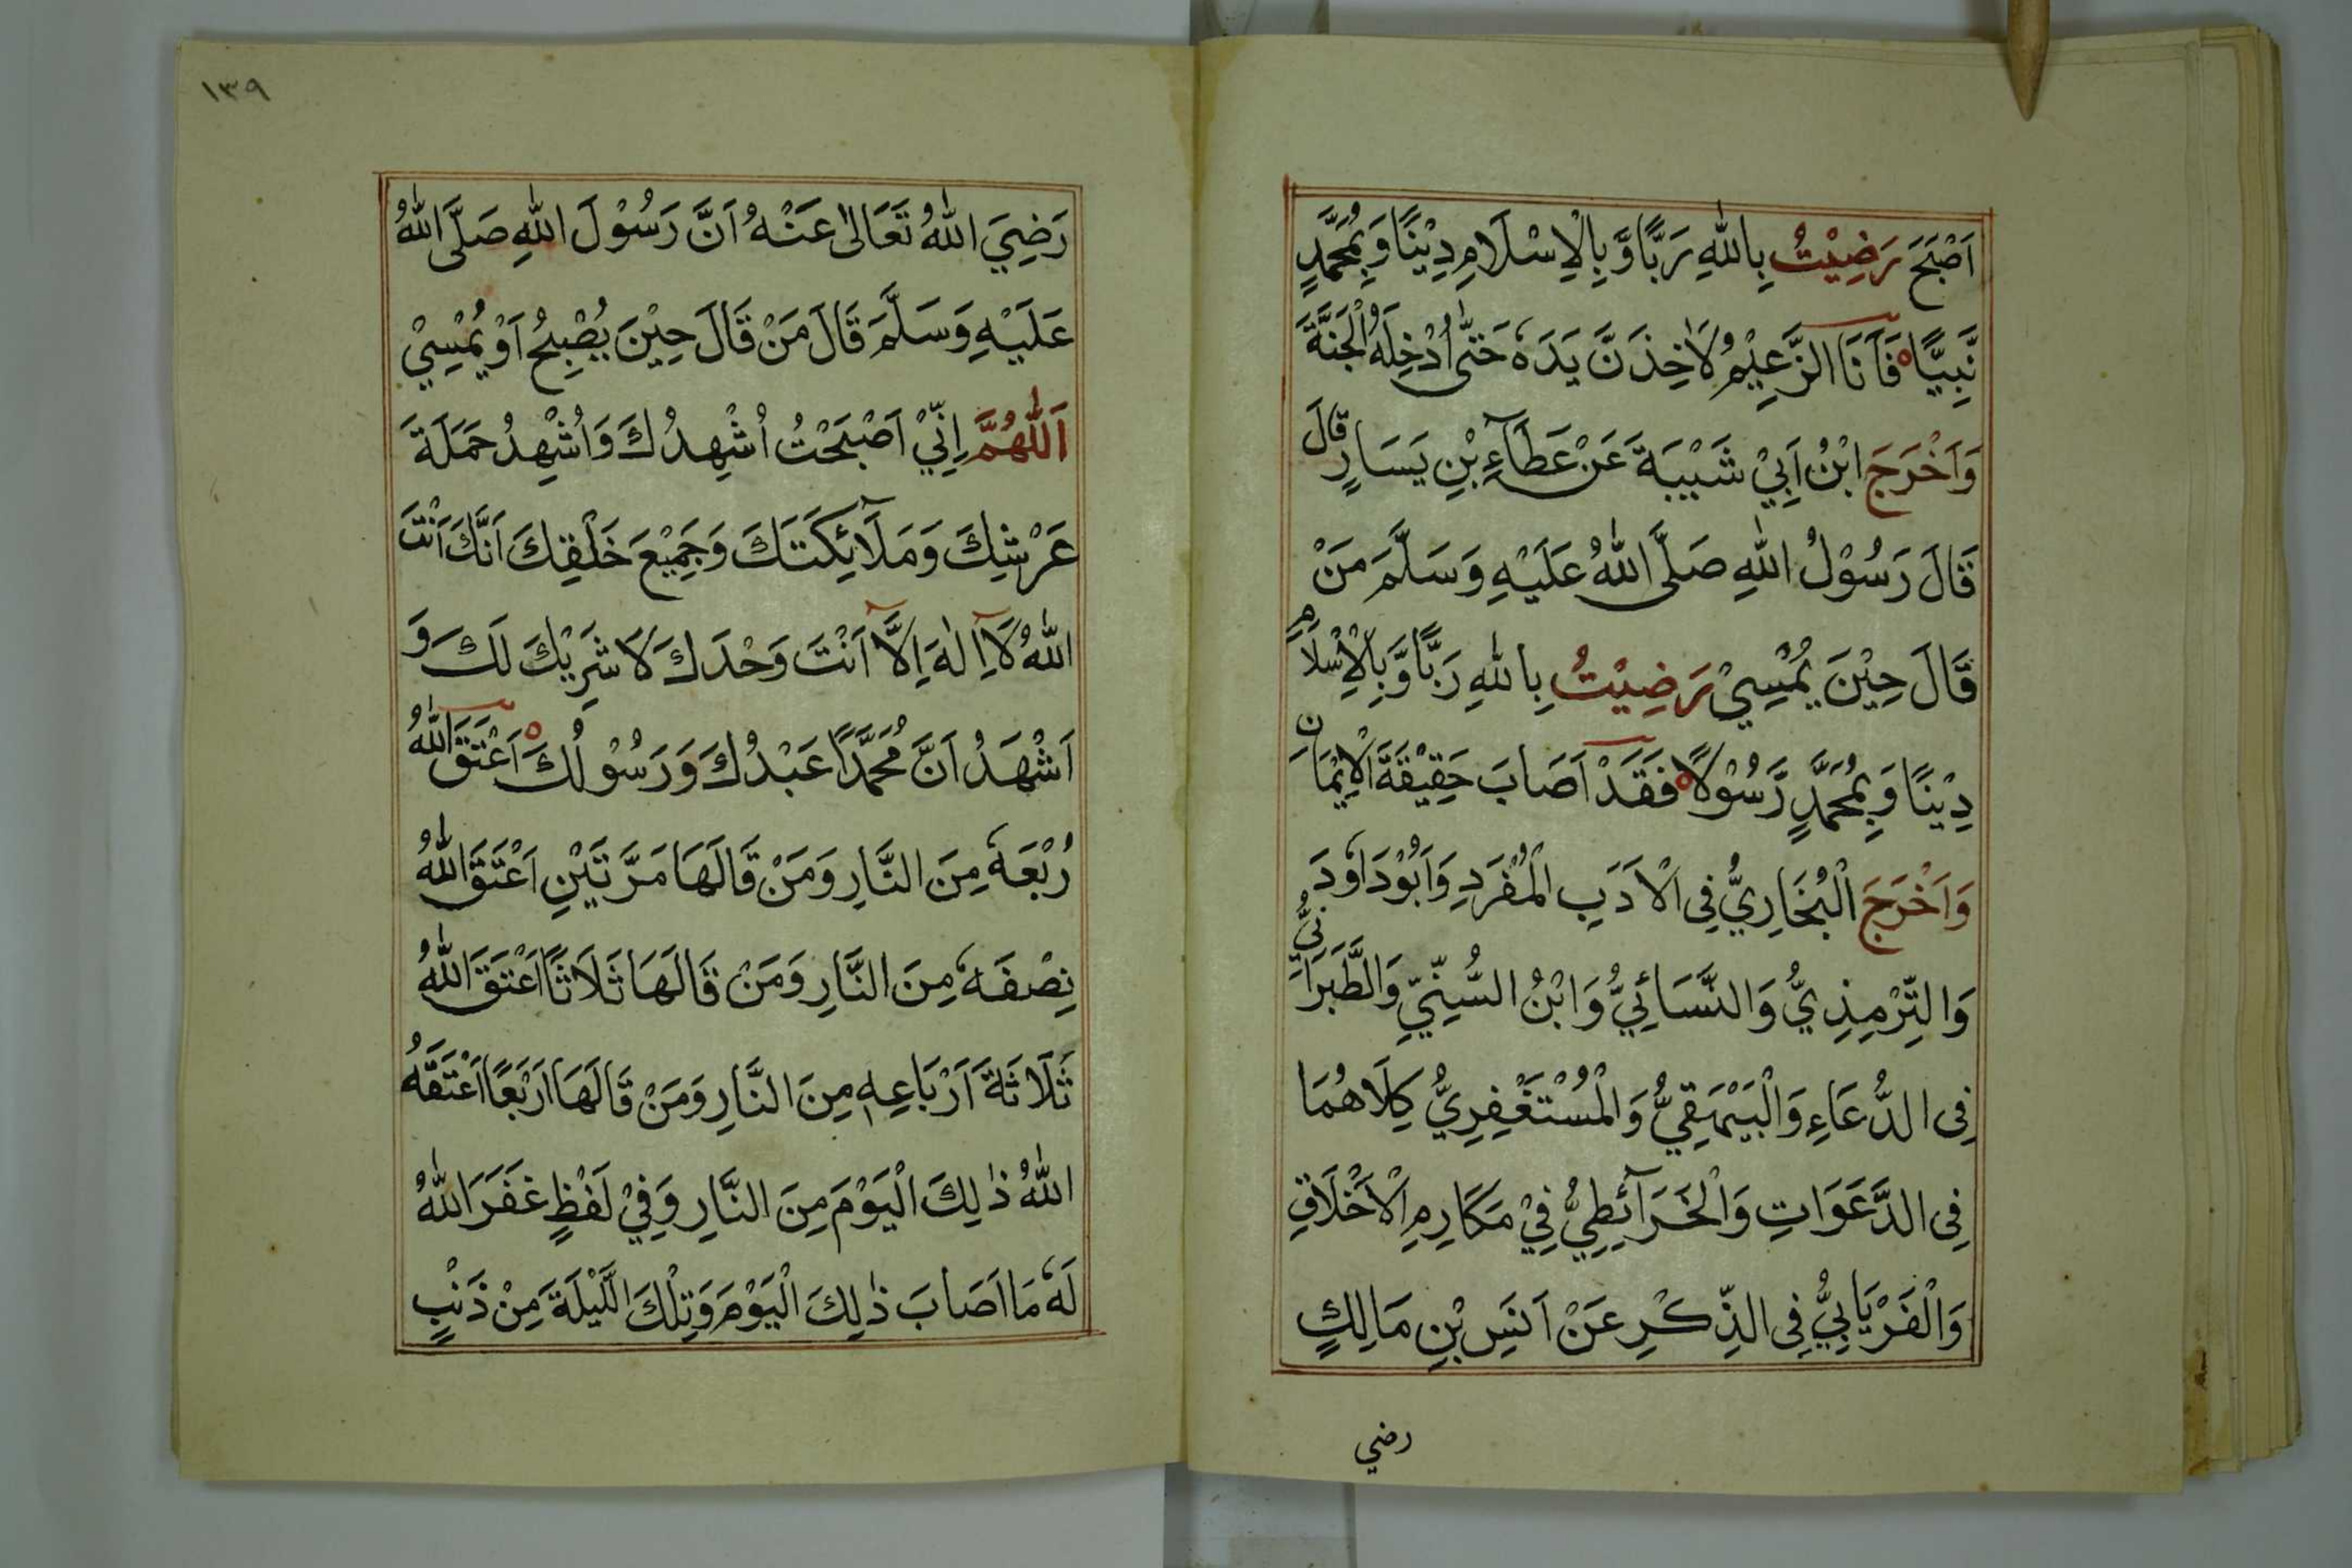 اَصْبَحَ رَضِيْتُ بِاللّٰهِ رَبًّا وَّبِالْاِسْلَامِ دِيْنًا وَبِمُحَمَّدٍ
نَّبِيًّا فَاَنَا الزَّعِيْمُ لَاٰخِذَنَّ يَدَهٗ حَتّٰى اُدْخِلَهُ الْجَنَّةَ
وَاَخْرَجَ ابْنُ اَبِيْ شَيْبَةَ عَنْ عَطَآءِ بْنِ يَسَارٍ قَالَ
قَالَ رَسُوْلُ اللّٰهِ صَلَّى اللّٰهُ عَلَيْهِ وَسَلَّمَ مَنْ
قَالَ حِيْنَ يُمْسِيْ رَضِيْتُ بِاللّٰهِ رَبًّا وَّبِالْاِسْلَامِ
دِيْنًا وَبِمُحَمَّدٍ رَّسُوْلًا فَقَدْ اَصَابَ حَقِيْقَةَ الْاِيْمَانِ
وَاَخْرَجَ الْبُخَارِيُّ فِى الْاَدَبِ الْمُفْرَدِ وَاَبُوْدَاوٗدَ
وَالتِّرْمِذِيُّ وَالنَّسَائِيُّ وَابْنُ السُّنِّيِّ وَالطَّبَرَانِيُّ
فِى الدُّعَاءِ وَالْبَيْهَقِيُّ وَالْمُسْتَغْفِرِيُّ كِلَاهُمَا
فِى الدَّعَوَاتِ وَالْخَرَآئِطِيُّ فِيْ مَكَارِمِ الْاَخْلَاقِ
وَالْفَرْيَابِيُّ فِى الذِّكْرِ عَنْ اَنَسِ بْنِ مَالِكٍ
رضي
١٣٩
رَضِيَ اللّٰهُ تَعَالٰى عَنْهُ اَنَّ رَسُوْلَ اللّٰهِ صَلَّى اللّٰهُ
عَلَيْهِ وَسَلَّمَ قَالَ مَنْ قَالَ حِيْنَ يُصْبِحُ اَوْ يُمْسِيْ
اَللّٰهُمَّ اِنِّيْ اَصْبَحْتُ اُشْهِدُكَ وَاُشْهِدُ حَمَلَةَ
عَرْشِكَ وَمَلَآئِكَتَكَ وَجَمِيْعَ خَلْقِكَ اَنَّكَ اَنْتَ
اللّٰهُ لَآ اِلٰهَ اِلَّآ اَنْتَ وَحْدَكَ لَا شَرِيْكَ لَكَ وَ
اَشْهَدُ اَنَّ مُحَمَّدًا عَبْدُكَ وَرَسُوْلُكَ اَعْتَقَ اللّٰهُ
رُبْعَهٗ مِنَ النَّارِ وَمَنْ قَالَهَا مَرَّتَيْنِ اَعْتَقَ اللّٰهُ
نِصْفَهٗ مِنَ النَّارِ وَمَنْ قَالَهَا ثَلَاثًا اَعْتَقَ اللّٰهُ
ثَلَاثَةَ اَرْبَاعِهٖ مِنَ النَّارِ وَمَنْ قَالَهَا اَرْبَعًا اَعْتَقَهُ
اللّٰهُ ذٰلِكَ الْيَوْمَ مِنَ النَّارِ وَفِيْ لَفْظٍ غَفَرَ اللّٰهُ
لَهٗ مَا اَصَابَ ذٰلِكَ الْيَوْمَ وَتِلْكَ الَّلَيْلَةَ مِنْ ذَنْبٍ